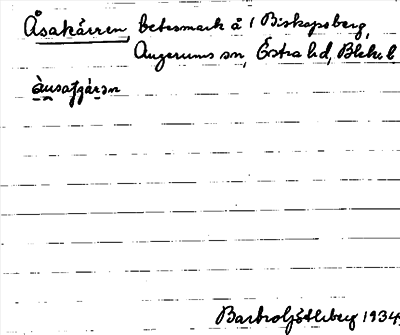 Åsakärren, betesmark å 1 Biskopsberg,
Augerums sn, Östra hd, Blek. l
Barbro Göthberg 1934.